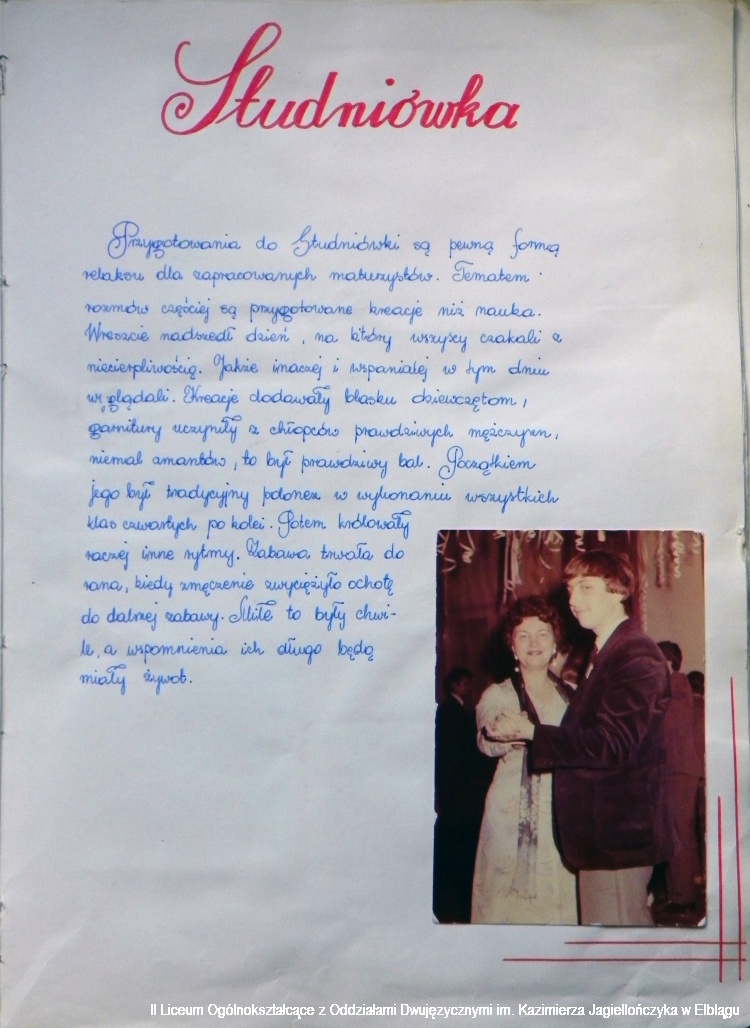 Studniówka
Przygotowania do Studniówki są pewną formą
relaksu dla zapracowanych maturzystów. Tematem
rozmów częściej są przygotowane kreacje niż nauka.
Wreszcie nadszedł dzień, na który wszyscy czekali z
niecierpliwością. Jakże inaczej i wspaniałej w tym dniu
wyglądali. Kreacje dodawały blasku dziewczętom,
garnitury uczyniły z chłopców prawdziwych mężczyzn,
niemal amantów, to był prawdziwy bal. Początkiem
jego był tradycyjny polonez w wykonaniu wszystkich
klas czwartych po kolei. Potem królowały
raczej inne rytmy. Zabawa trwała do
rana, kiedy zmęczenie zwyciężyło ochotę
do dalszej zabawy. Miłe to były chwi-
le, a wspomnienia ich długo będą
miały żywot.
II Liceum Ogólnokształcące z Oddziałami Dwujęzycznymi im. Kazimierza Jagiellończyka w Elblągu